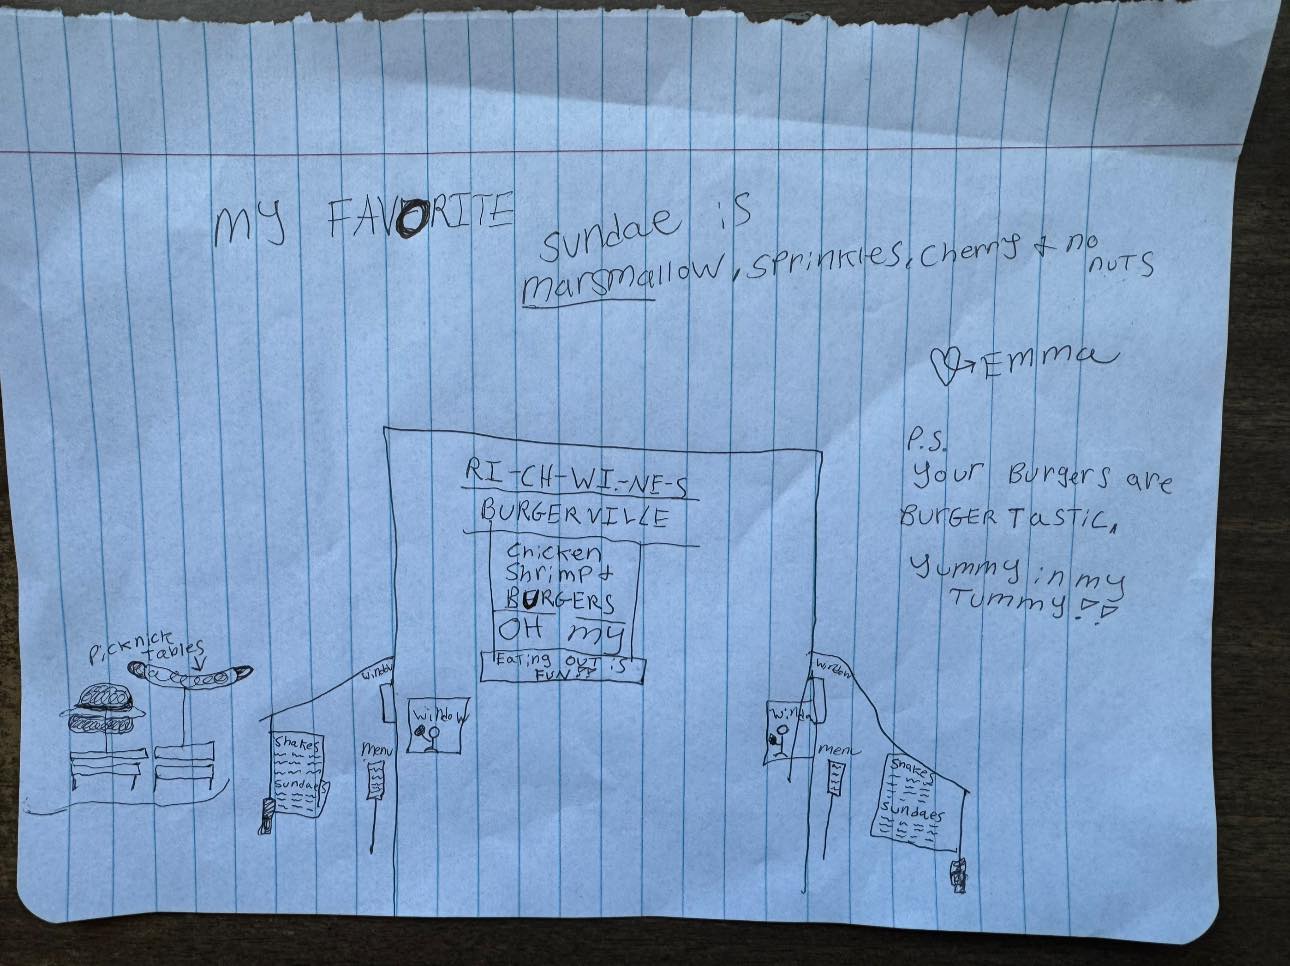 MY FAVORITE
sundae is
marsmallow, sprinkles, cherry & no
nuts
Emma
P.S.
Your Burgers are
BURGER TASTIC,
Yummy in my
TUMMY!!
RI-CH-WI.-NE-S
BURGERVILLE
Chicken
Shrimp &
BURGERS
OH MY
Eating OUT is
FUN!!
picknick
tables
window
window
menu
Shakes
Sundaes
window
Winda
menu
Shakes
Sundaes